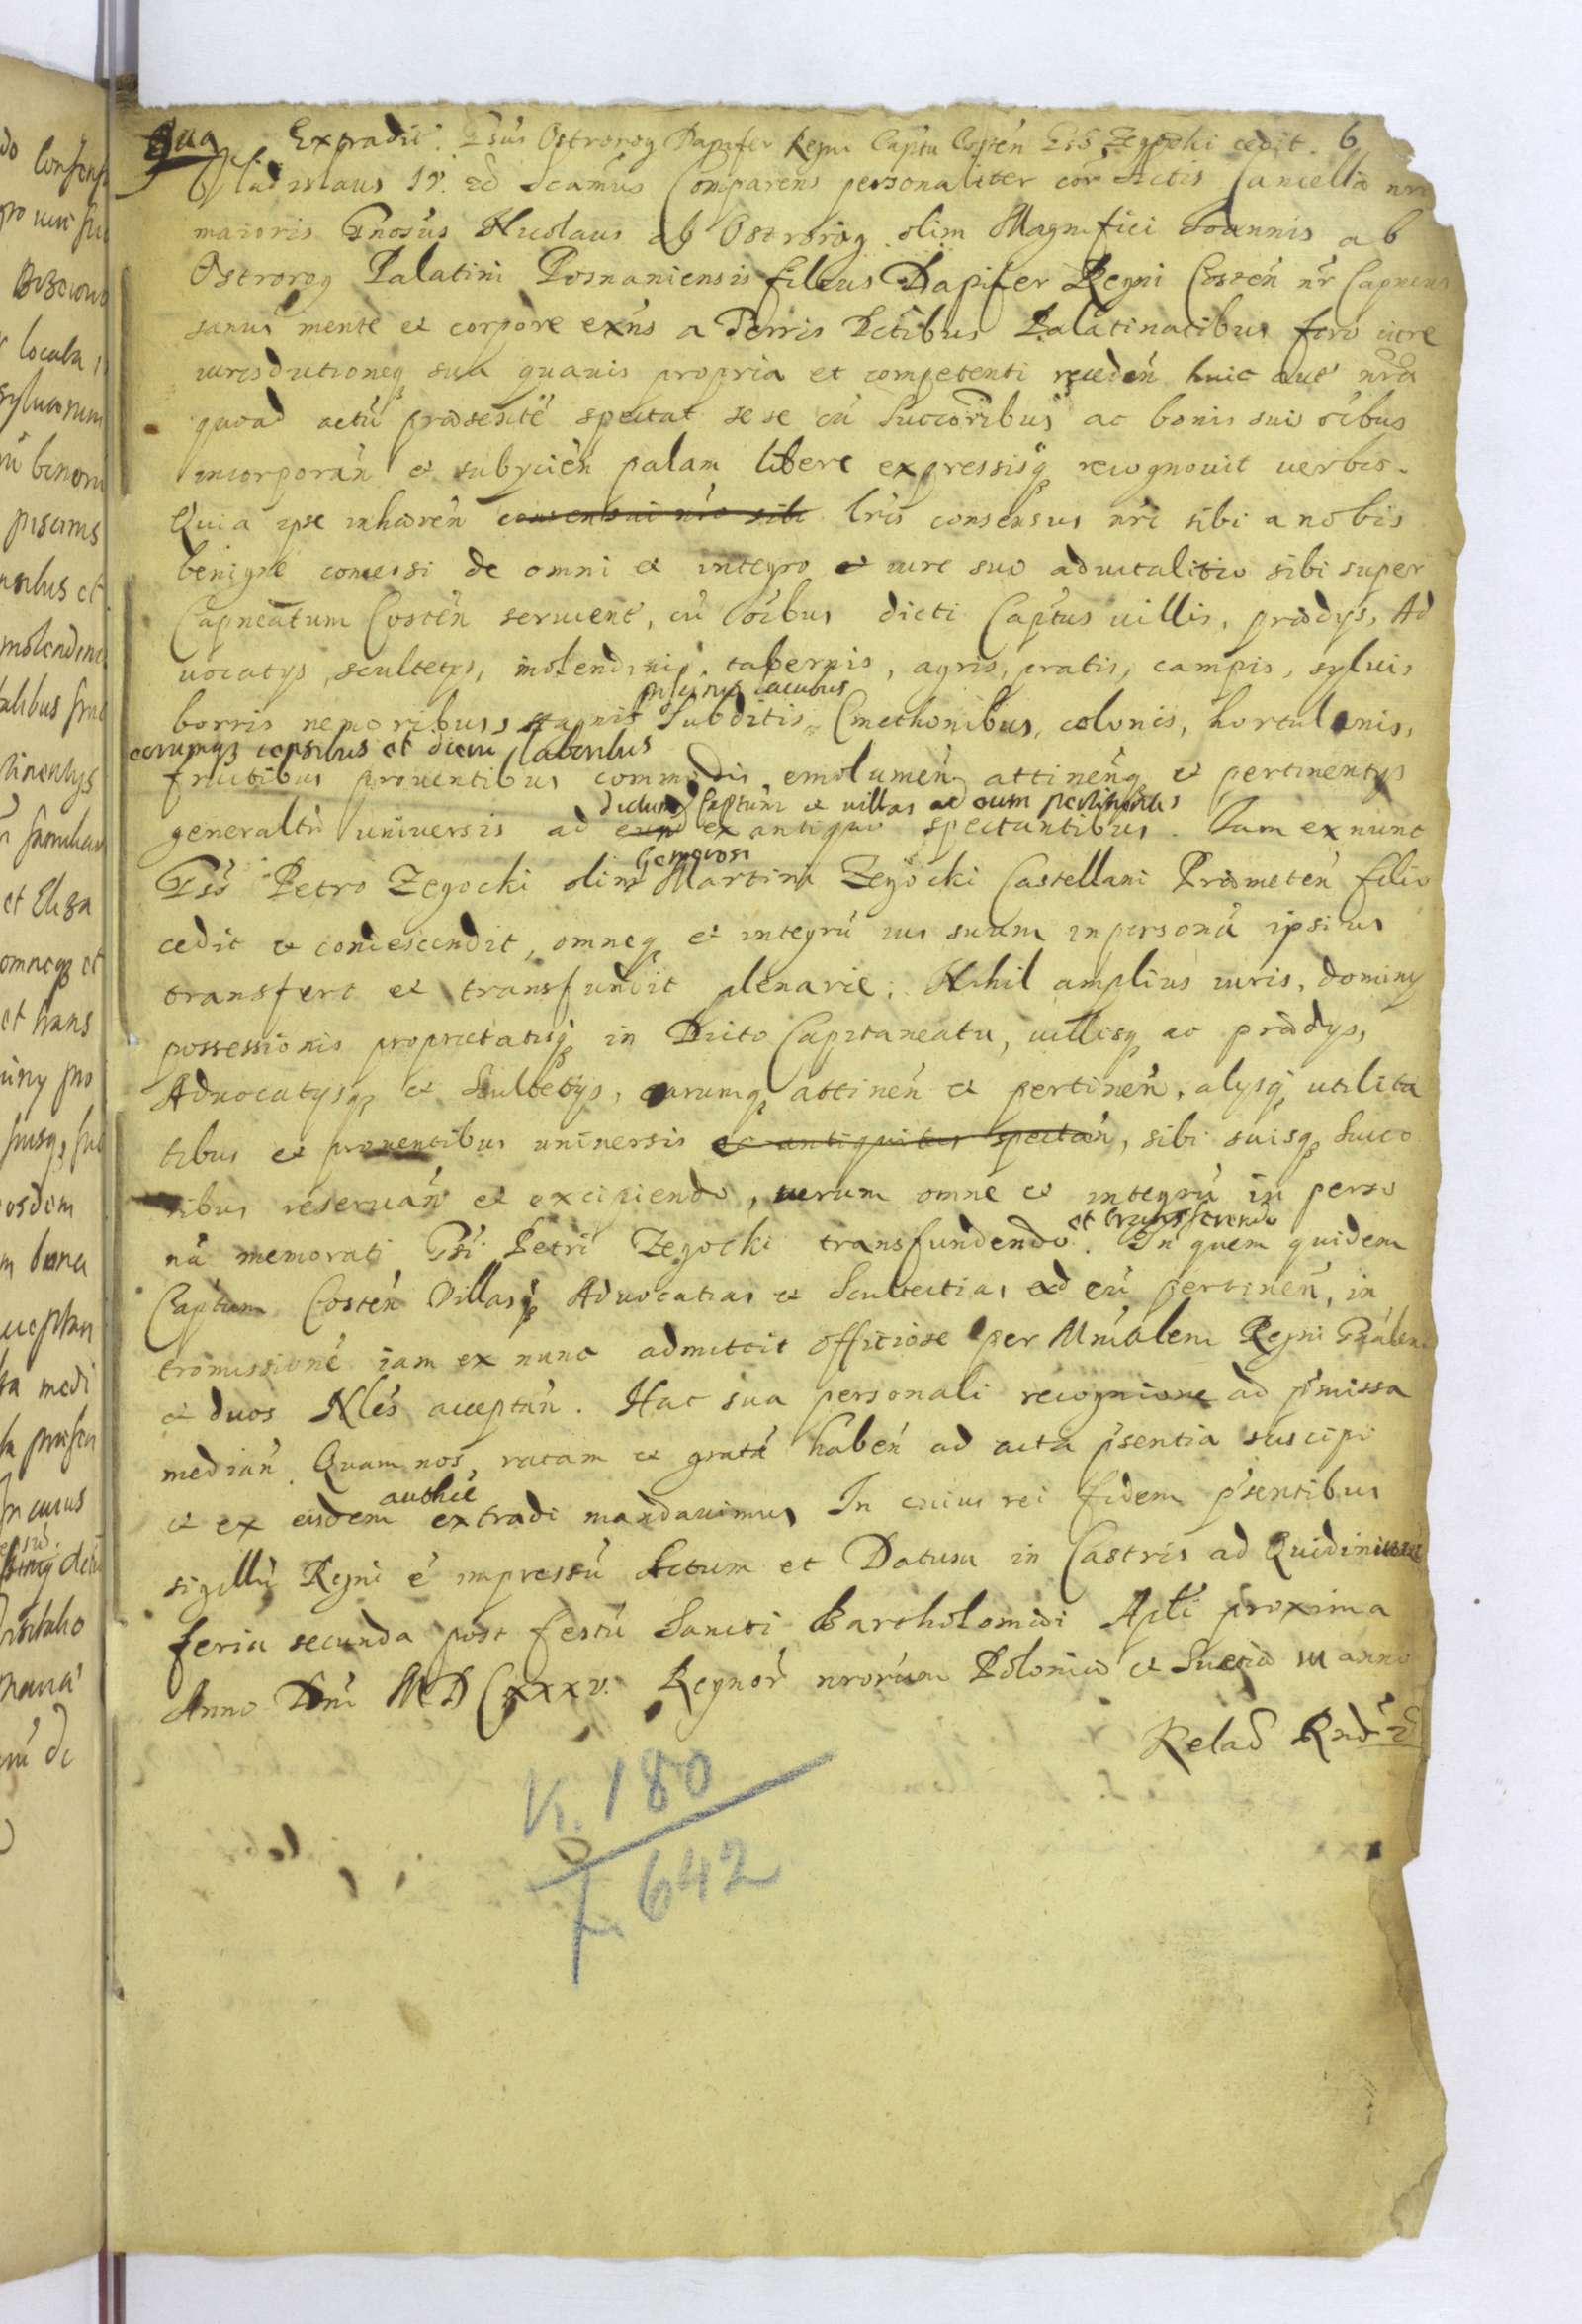 Extradit. Gsus Ostrorog Dapifer Regni Captu Costen Gso Zegocki cedit. 6
Vladislaus IV. Comparens personaliter cor Actis Cancella nrae
maioris Gnosus Nicolaus ab Ostrorog olim Magnifici Joannis ab
Ostrorog Palatini Posnaniensis filius Dapifer Regni Costen nr Capneus
sanus mente et corpore exns a Terris Palatinatibus foro iure
iurisdictioneq sua quavis propria et competenti receden huic aut nrae
quoad actu praesente spectat sese cu Succoribus ac bonis suis oibus
incorporan et subiicien palam libere expressisq recognovit verbis.
Quia ipse inhaeren consensui nro sibi lris consensus nri sibi a nobis
benigne concessi de omni et integro et iure suo advitalitio sibi super
Capneatum Costen servient, cu oibus dicti Captus villis, praedys, Ad
vocatys, scultetys, molendinis, tabernis, agris, pratis, campis, sylvis
piscinis lacubus
borris nemoribus, stagnis Subditis, Cmethonibus, colonis, hortulanis,
eorumq censibus et laboribus
fructibus proventibus commodis emolumen attinenq et pertinentys
dictum Captum et villas ad eum pertinentes
generaltr universis ad ex antiquo spectantibus. Iam ex nunc
Generosi
Gso Petro Zegocki olim Martini Zegocki Castellani Praemeten filio
cedit et condescendit, omneq et integru ius suum in persona ipsius
transfert et transfundit plenarie. Nihil amplius iuris, dominy
possessionis proprietatisq in Dicto Capitaneatu, villisq ac praedys,
Advocatysq et Scultetys, earumq attinen et pertinen, alysq utilita
tibus et proventibus universis ex antiquitus spectan, sibi suisq Succo
ribus reservan et excipiendo, verum omne et integru in perso
et transferendo
na memorati Gsi Petri Zegocki transfundendo. In quem quidem
Captum Costen Villasq Advocatias et Scultetias ad eu pertinen, in
tromissione iam ex nunc admittit officiose per Mnialem Regni Gnalem
et duos Nles acceptan. Hac sua personali recognione ad pmissa
median. Quam nos ratam et grata haben ad acta psentia suscipi
authce
et ex eisdem extradi mandavimus In cuius rei fidem psentibus
sigillu Regni e impressu Actum et Datum in Castris ad
feria secunda post festu Sancti Bartholomaei Apli proxima
Anno Dni MDCXXXV. Regnor nrorum Poloniae et Sueciae III anno
Relao
K. 180
f. 642